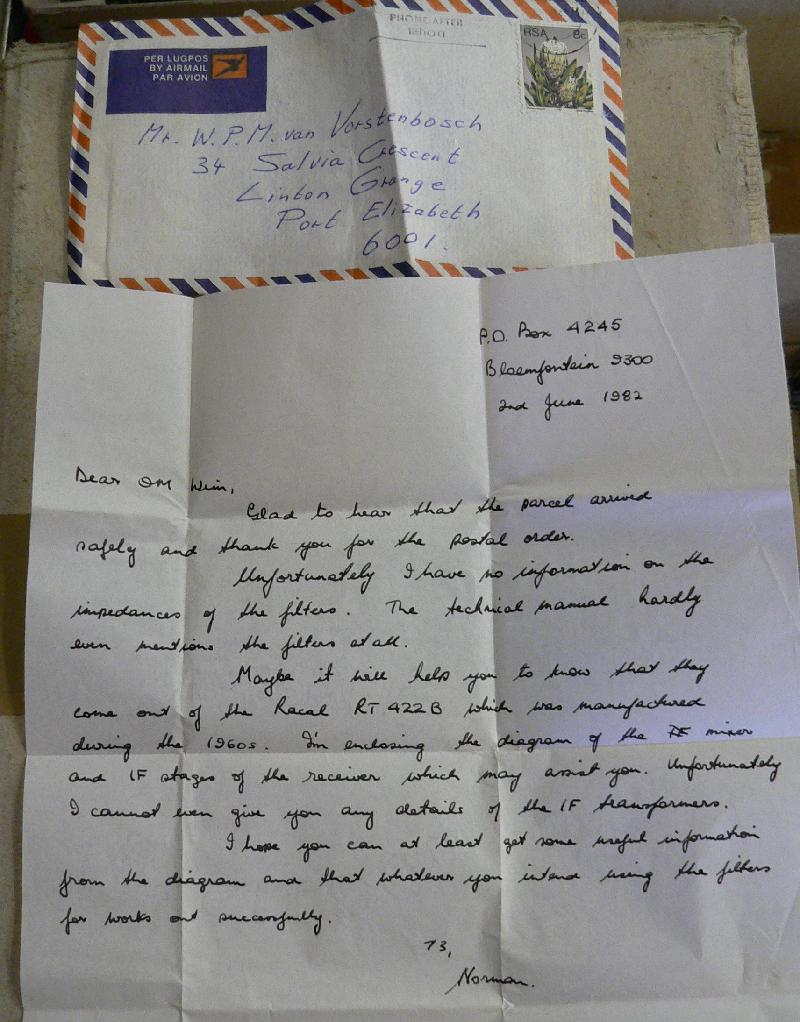 PHONE AFTER
18h00
RSA 8c
PER LUGPOS
BY AIRMAIL
PAR AVION
Mr. W. P. M. van Vorstenbosch
34 Salvia Crescent
Linton Grange
Port Elizabeth
6001.
P.O. Box 4245
Bloemfontein 9300
2nd June 1982
Dear OM Wim,
Glad to hear that the parcel arrived
safely and thank you for the postal order.
Unfortunately I have no information on the
impedances of the filters. The technical manual hardly
even mentions the filters at all.
Maybe it will help you to know that they
come out of the Racal RT 422B which was manufactured
during the 1960s. I'm enclosing the diagram of the mixer
and IF stages of the receiver which may assist you. Unfortunately
I cannot even give you any details of the IF transformers.
I hope you can at least get some useful information
from the diagram and that whatever you intend using the filters
for works out successfully.
73,
Norman.